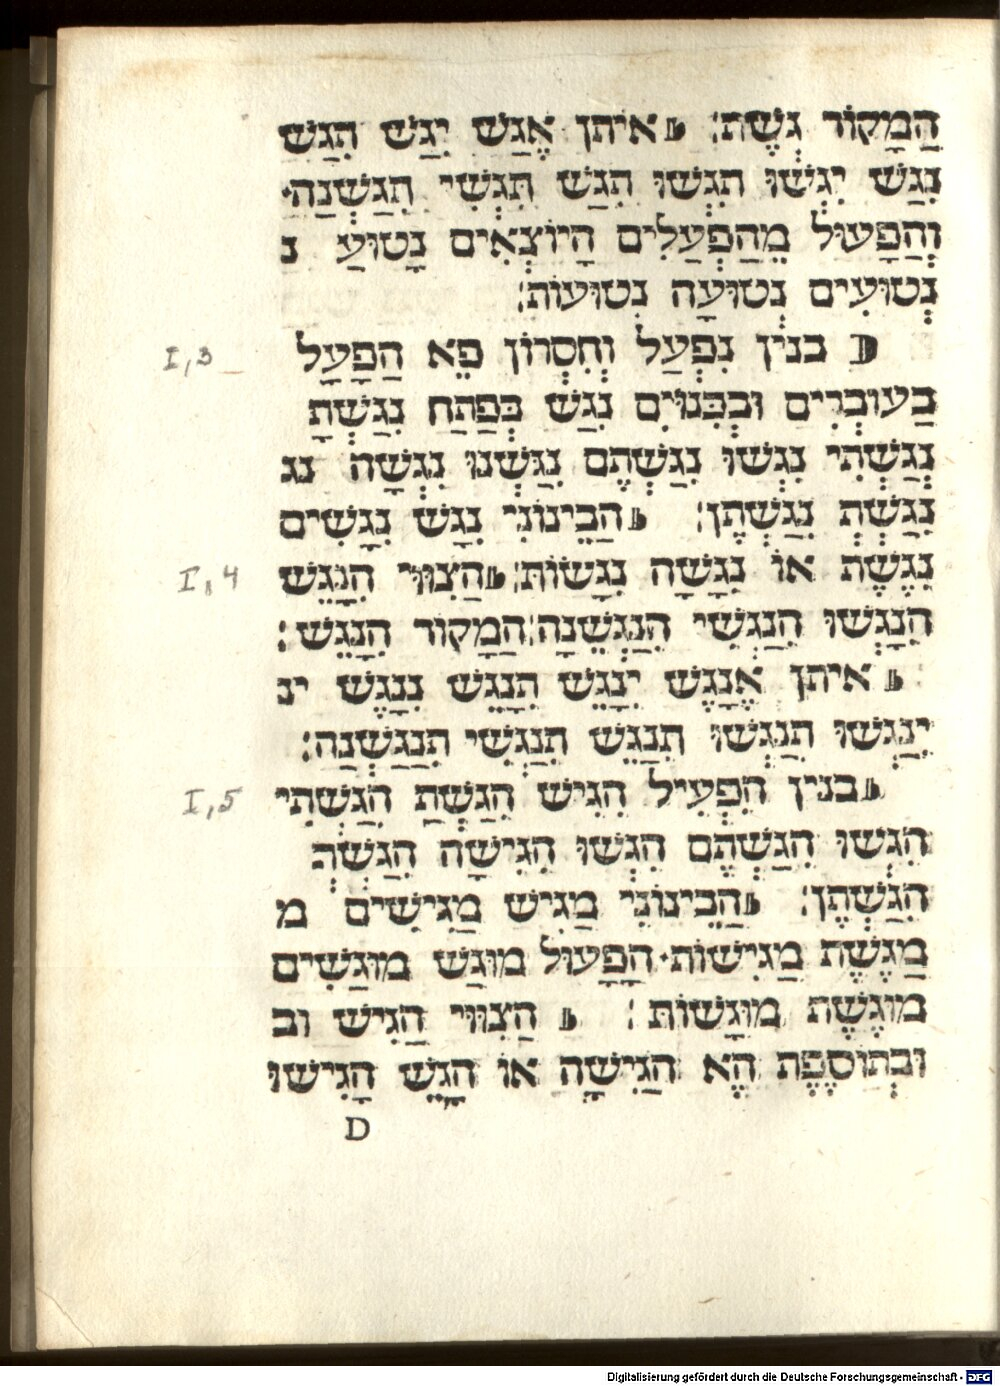 הַמָקוֹר גְשֶׁת׃ איתן אֶגַשׁ יִגַשׁ תִגַשׁ
נִגַשׁ יִגְשׁוּ תִגְשׁוּ תִגַשׁ תִגְשִׁי תִגַשְׁנָה׃
וְהַפָּעוּל מֵהַפְּעָלִים הַיוֹצְאִים נָטוּעַ נ
נְטוּעִים נְטוּעָה נְטוּעוֹת׃
בנין נִפְעַל וְחִסְרוֹן פֵא הַפָּעָל
בַעוֹבְרִים וּבְכִנוּיִם נִגַשׁ בְּפַתַח נִגַשְׁתָ
נִגַשְׁתִי נִגְשׁוּ נִגַשְׁתֶם נִגַשְׁנוּ נִגְשָׁה נג
נִגַשְׁתְ נִגַשְׁתֶן׃ הַבֵינוֹנִי נִגָשׁ נִגָשִׁים
נִגֶשֶׁת אוֹ נִגָשָׁה נִגָשׁוֹת׃ הַצִוּוּי הִנָגֵשׁ
הִנָגְשׁוּ הִנָגְשִׁי הִנָגֵשְׁנָה׃ הַמָקוֹר הִנָגֵשׁ׃
איתן אֶנָגֵשׁ יִנָגֵשׁ תִנָגֵשׁ נִנָגֵשׁ ינ
יִנָגְשׁוּ תִנָגְשׁוּ תִנָגֵשׁ תִנָגְשִׁי תִנָגַשְׁנָה׃
בנין הִפְעִיל הִגִישׁ הִגַשְׁתָ הִגַשְׁתִי
הִגְשׁוּ הִגַשְׁתֶם הִגְשׁוּ הִגִישָׁה הִגַשְׁתְ
הִגַשְׁתֶן׃ הַבֵינוֹנִי מַגִישׁ מַגִישִׁים מ
מַגֶשֶׁת מַגִישׁוֹת· הַפָּעוּל מוּגַשׁ מוּגַשִׁים
מוּגֶשֶׁת מוּגָשׁוֹת׃ הַצִוּוּי הַגִישׁ וב
וּבְתוֹסֶפֶת הֵא הַגִישָׁה אוֹ הָגֵשׁ הָגִישׁוּ
D
I,3
I,4
I,5
Digitalisierung gefördert durch die Deutsche Forschungsgemeinschaft - DFG